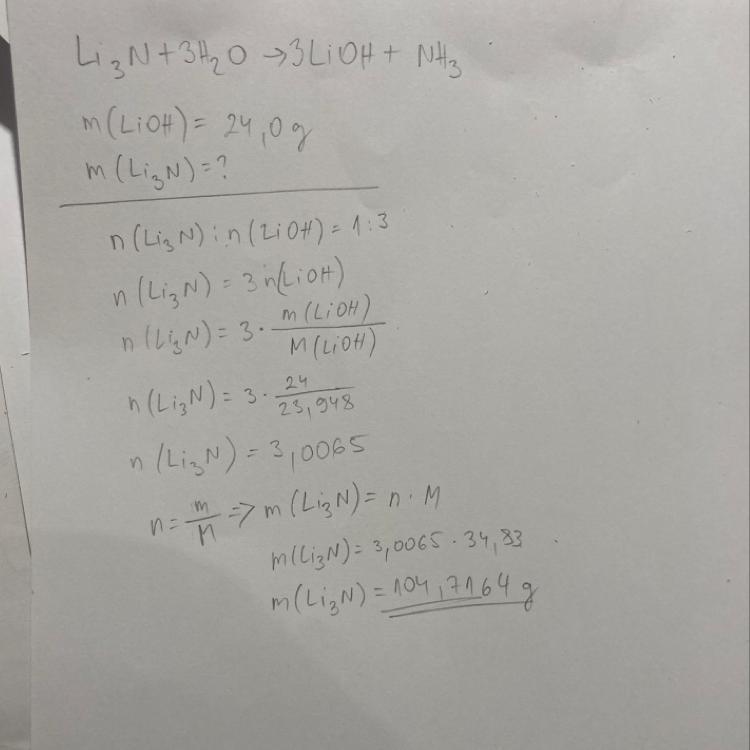 Li₃N + 3H₂O → 3LiOH + NH₃
m(LiOH) = 24,0g
m(Li₃N) = ?
n(Li₃N) : n(LiOH) = 1:3
n(Li₃N) = 3n(LiOH)
n(Li₃N) = 3 · m(LiOH) / M(LiOH)
n(Li₃N) = 3 · 24 / 23,948
n(Li₃N) = 3,0065
n = m / M => m(Li₃N) = n · M
m(Li₃N) = 3,0065 · 34,83
m(Li₃N) = 104,7164 g